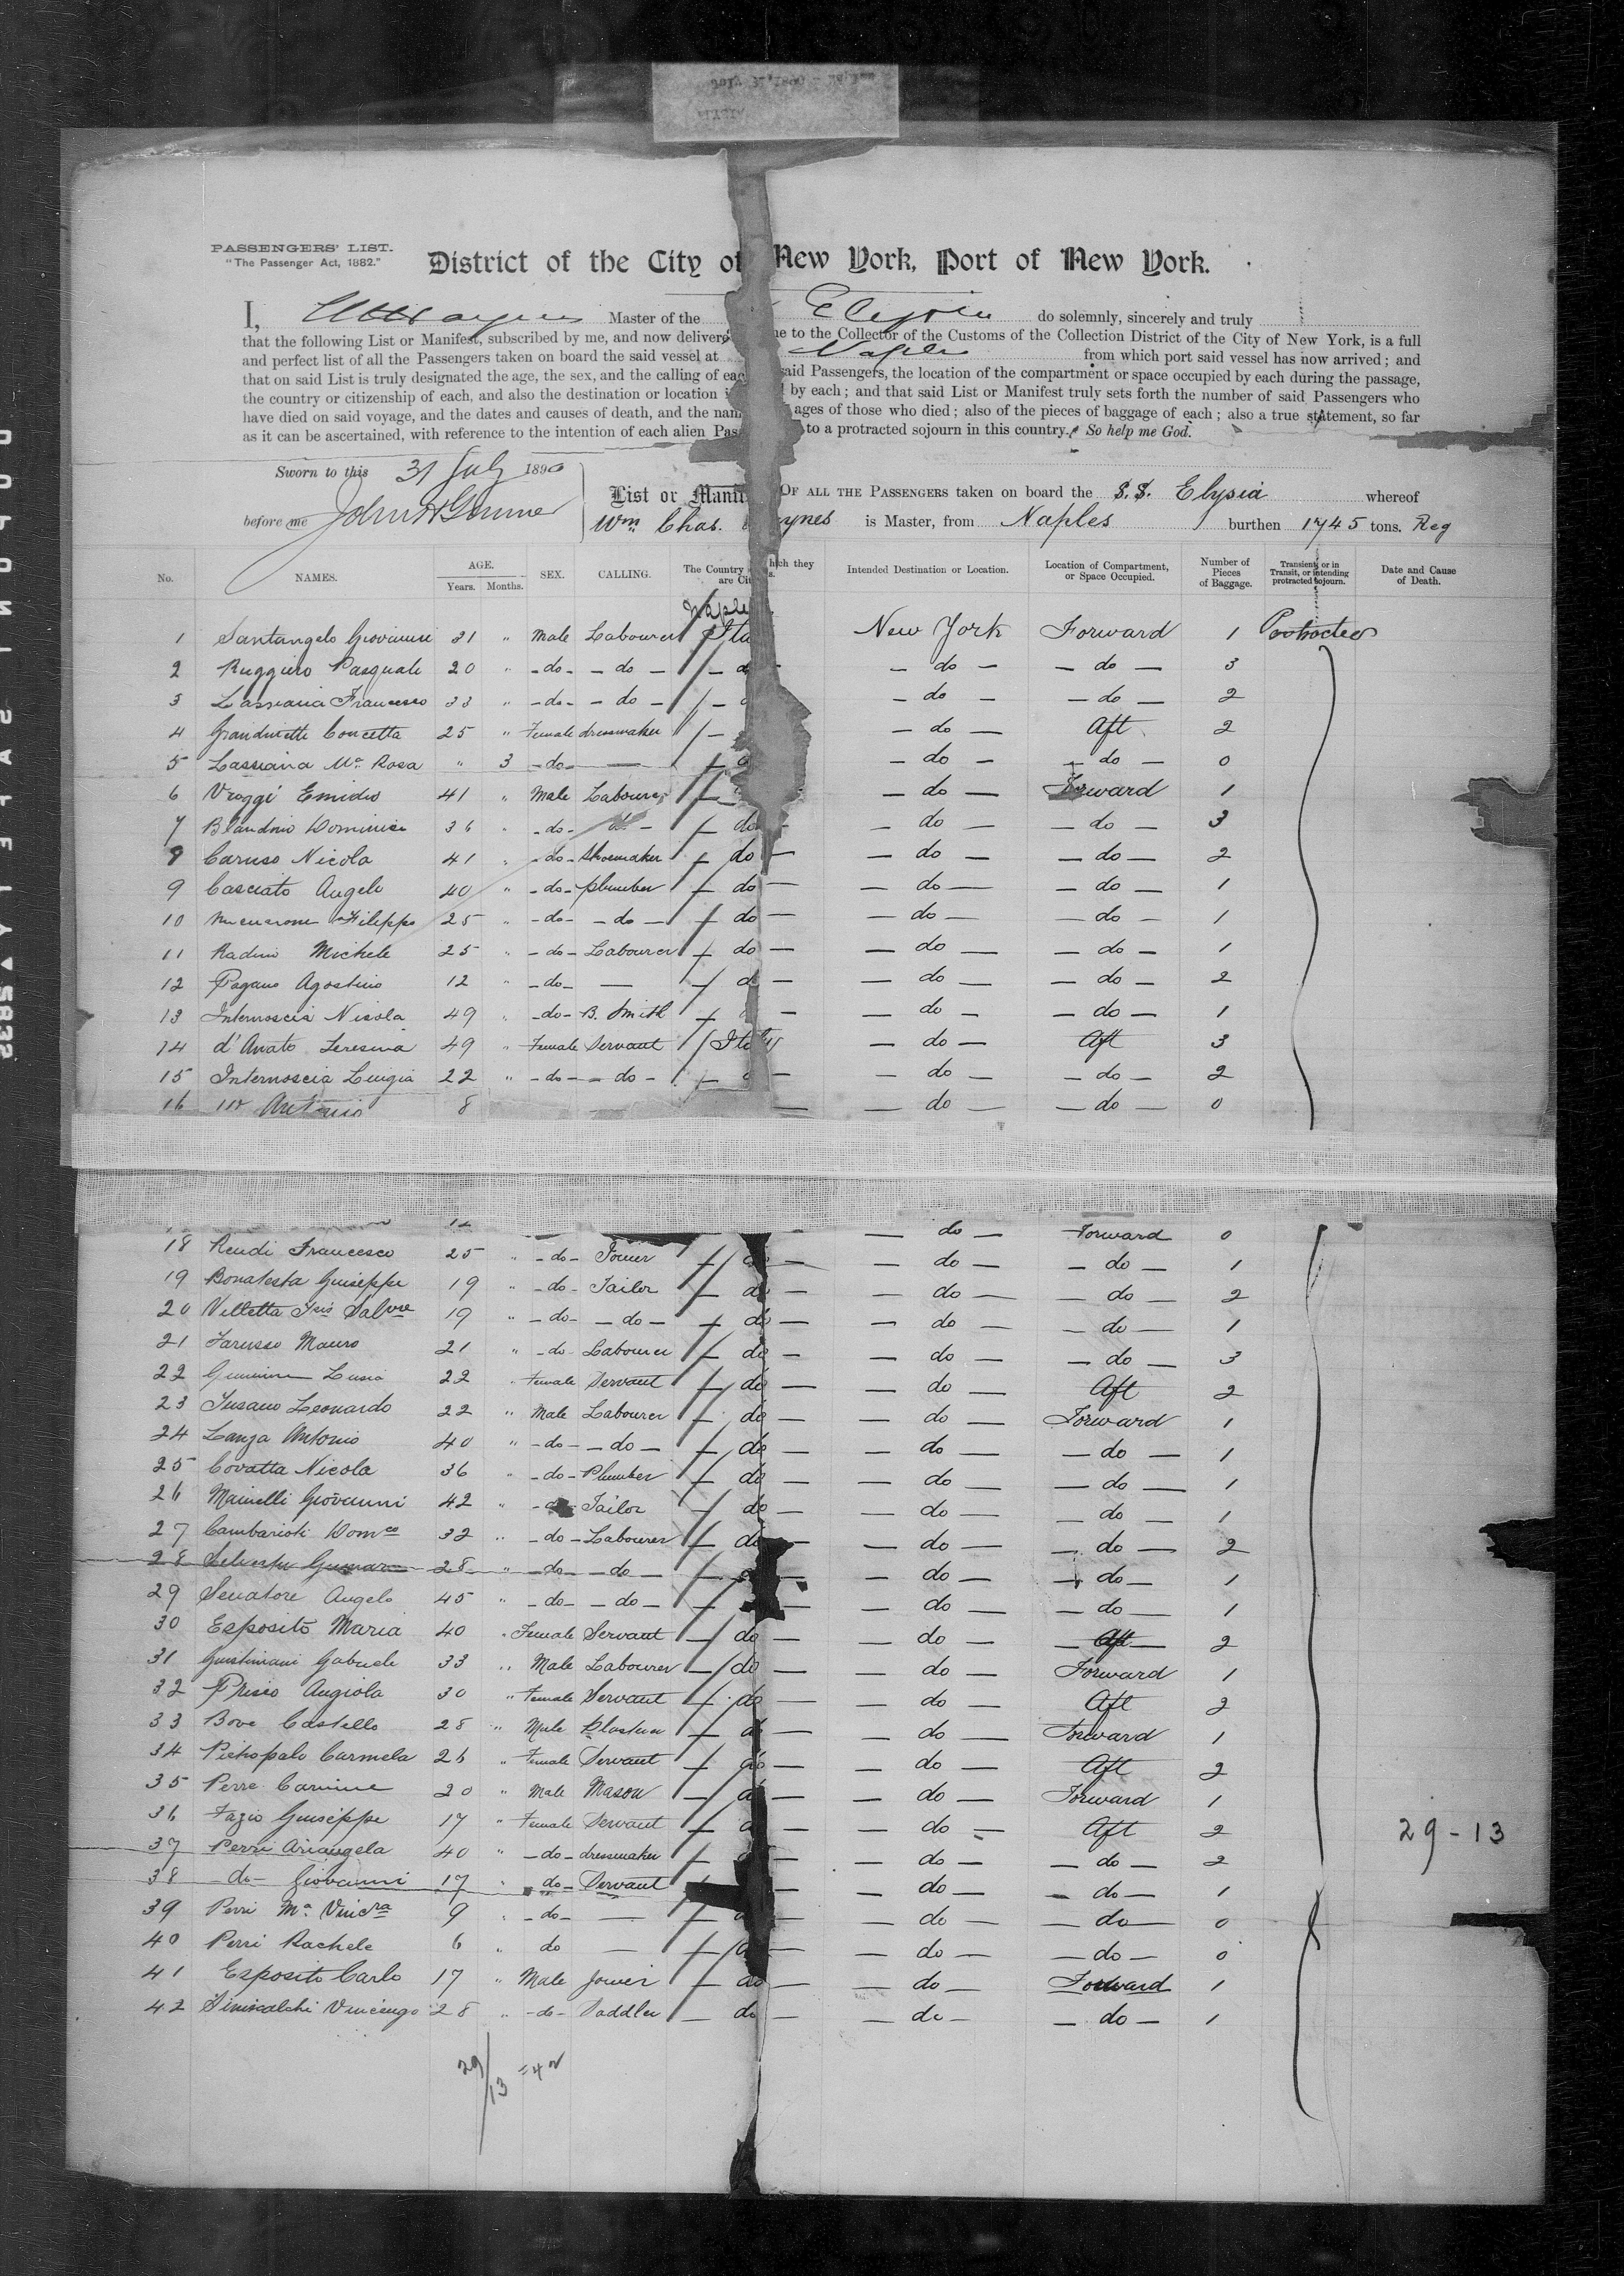 PASSENGERS' LIST.
"The Passenger Act, 1882."
District of the City of New York, Port of New York.
I, Master of the Elysia do solemnly, sincerely and truly
that the following List or Manifest, subscribed by me, and now delivered me to the Collector of the Customs of the Collection District of the City of New York, is a full
and perfect list of all the Passengers taken on board the said vessel at Naples from which port said vessel has now arrived; and
that on said List is truly designated the age, the sex, and the calling of each said Passengers, the location of the compartment or space occupied by each during the passage,
the country or citizenship of each, and also the destination or location by each; and that said List or Manifest truly sets forth the number of said Passengers who
have died on said voyage, and the dates and causes of death, and the names ages of those who died; also of the pieces of baggage of each; also a true statement, so far
as it can be ascertained, with reference to the intention of each alien Pas to a protracted sojourn in this country. So help me God.
Sworn to this 31 July 1890
before me John
List or Mani OF ALL THE PASSENGERS taken on board the S.S. Elysia whereof
Wm Chas. ynes is Master, from Naples burthen 1745 tons. Reg
No. NAMES. AGE. Years. Months. SEX. CALLING. The Country which they are Cit s. Intended Destination or Location. Location of Compartment, or Space Occupied. Number of Pieces of Baggage. Transient, or in Transit, or intending protracted sojourn. Date and Cause of Death.
Naple
1 Santangelo Giovanni 31 " Male Labourer Ita New York Forward 1 Protracted
2 Ruggiero Pasquale 20 " -do- -do- - d - - do - - do - 3
3 Lassiana Francesco 33 " -do- -do- - - do - - do - 2
4 Grandinetti Concetta 25 " Female dressmaker - - do - Aft 2
5 Lassiana Ma Rosa " 3 -do- — - - do - - do - 0
6 Vroggi Emidio 41 " Male Labourer - - do - Forward 1
7 Blandino Dominico 36 " -do- do - - do - - do - - do - 3
8 Caruso Nicola 41 " -do- Shoemaker - do - - do - - do - 2
9 Casciato Angelo 40 " -do- plumber - do - - do - - do - 1
10 Filippo 25 " -do- -do- - do - - do - - do - 1
11 Radino Michele 25 " -do- Labourer - do - - do - - do - 1
12 Pagano Agostino 12 " -do- — - d - - do - - do - 2
13 Internoscia Nicola 49 " -do- B. Smith - - - do - - do - 1
14 d'Amato Teresina 49 " Female Servant Italy - do - Aft 3
15 Internoscia Luigia 22 " -do- -do- - - - do - - do - 2
16 Antonio 8 - - do - - do - 0
12 - - do - Forward 0
18 Rendi Francesco 25 " -do- Joiner - do - - do - - do - 1
19 Bonatesta Guiseppe 19 " -do- Tailor - do - - do - - do - 2
20 Villetta Salvre 19 " -do- -do- - do - - do - - do - 1
21 Tarusso Mauro 21 " -do- Labourer - do - - do - - do - 3
22 Lucia 22 " Female Servant - do - - do - Aft 2
23 Tusano Leonardo 22 " Male Labourer - do - - do - Forward 1
24 Lanza Antonio 40 " -do- -do- - do - - do - - do - 1
25 Covatta Nicola 36 " -do- Plumber - do - - do - - do - 1
26 Mainelli Giovanni 42 " -do- Tailor - do - - do - - do - 1
27 Cambarioti Domco 32 " -do- Labourer - do - - do - - do - 2
28 28 " -do- -do- - - - do - - do - 1
29 Senatore Angelo 45 " -do- -do- - - do - - do - 1
30 Esposito Maria 40 " Female Servant - do - - do - Aft 2
31 Gustiniani Gabriele 33 " Male Labourer - do - - do - Forward 1
32 Prisco Angiola 30 " Female Servant - do - - do - Aft 2
33 Bove Castello 28 " Male Plasterer - do - - do - Forward 1
34 Pietropalo Carmela 26 " Female Servant - do - - do - Aft 2
35 Perre Carmine 20 " Male Mason - do - - do - Forward 1
36 Fazio Guiseppe 17 " Female Servant - d - - do - Aft 2
37 Perri Ariangela 40 " -do- dressmaker - - - do - - do - 2
38 -do- Giovanni 17 " do- Servant - - do - - do - 1
39 Perri Ma Vincra 9 " -do- — - - - do - - do - 0
40 Perri Rachele 6 " do — - d - - do - - do - 0
41 Esposito Carlo 17 " Male Joiner - do - - do - Forward 1
42 Siniscalchi Vincenzo 28 " -do- Saddler - do - - do - - do - 1
29-13
29/13 = 42